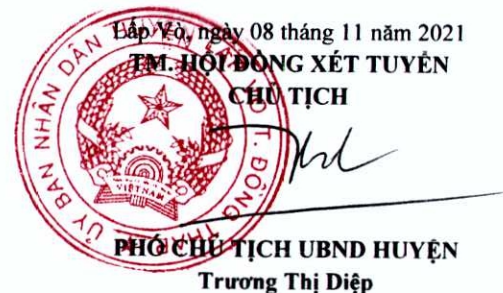 Lấp Vò, ngày 08 tháng 11 năm 2021
TM. HỘI ĐỒNG XÉT TUYỂN
CHỦ TỊCH
ỦY BAN NHÂN DÂN HUYỆN LẤP VÒ T. ĐỒNG THÁP
VIỆT NAM
PHÓ CHỦ TỊCH UBND HUYỆN
Trương Thị Diệp